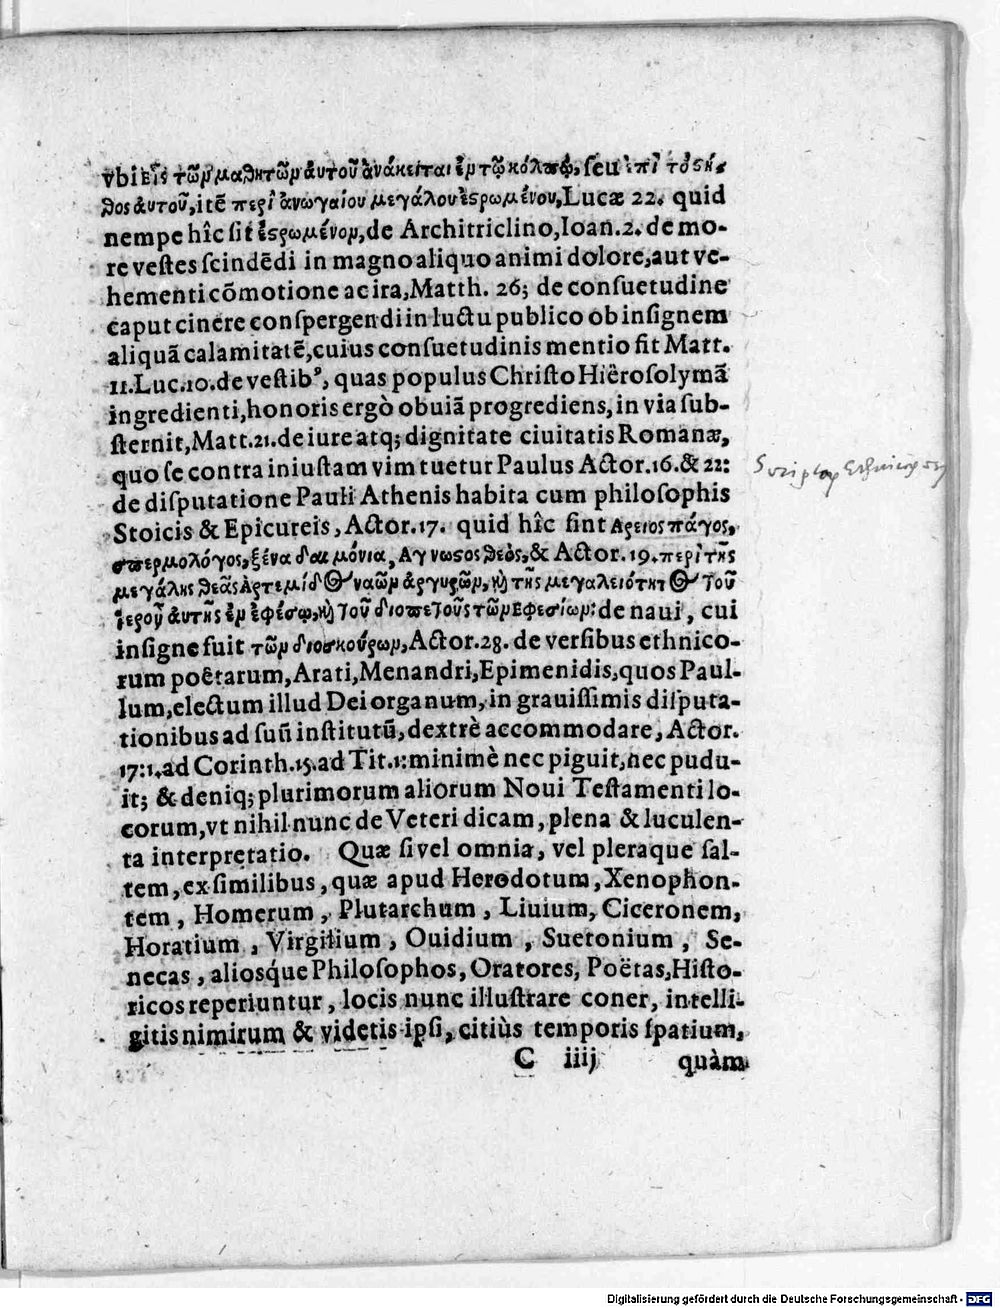 vbi εἷς τῶν μαθητῶν ἀυτοῦ ἀνάκειται ἐν τῷ κόλπῳ, ſeu ἐπὶ τὸ ςῆ-
θος ἀυτοῦ, itē περὶ ἀνωγαίου μεγάλου ἐςρωμένου, Lucæ 22. quid
nempe hîc ſit ἐςρωμένον, de Architriclino, Ioan. 2. de mo-
re veſtes ſcindēdi in magno aliquo animi dolore, aut ve-
hementi cōmotione ac ira, Matth. 26; de conſuetudine
caput cinere conſpergendi in luctu publico ob inſignem
aliquā calamitatē, cuius conſuetudinis mentio fit Matt.
11. Luc. 10. de veſtibꝰ, quas populus Chriſto Hiëroſolymā
ingredienti, honoris ergò obuiā progrediens, in via ſub-
ſternit, Matt. 21. de iure atq; dignitate ciuitatis Romanæ,
quo ſe contra iniuſtam vim tuetur Paulus Actor. 16. & 22:
de diſputatione Pauli Athenis habita cum philoſophis
Stoicis & Epicureis, Actor. 17. quid hîc ſint Αρειος πάγος,
σπερμολόγος, ξένα δαιμόνια, Αγνωςος θεὸς, & Actor. 19. περὶ τῆς
μεγάλης θεᾶς Αρτεμίδος ναῶν ἀργυρῶν, καὶ τῆς μεγαλειότητος τοῦ
ἱεροῦ ἀυτῆς ἐν ἐφέσῳ, καὶ τοῦ διοπετοῦς τῶν Εφεσίων: de naui, cui
inſigne fuit τῶν διοσκούρων, Actor. 28. de verſibus ethnico-
rum poëtarum, Arati, Menandri, Epimenidis, quos Paul-
lum, electum illud Dei organum, in grauiſſimis diſputa-
tionibus ad ſuū inſtitutū, dextrè accommodare, Actor.
17: 1. ad Corinth. 15. ad Tit. 1: minimè nec piguit, nec pudu-
it; & deniq; plurimorum aliorum Noui Teſtamenti lo-
corum, vt nihil nunc de Veteri dicam, plena & luculen-
ta interpretatio. Quæ ſi vel omnia, vel pleraque ſal-
tem, ex ſimilibus, quæ apud Herodotum, Xenophon-
tem, Homerum, Plutarchum, Liuium, Ciceronem,
Horatium, Virgilium, Ouidium, Suetonium, Se-
necas, alioſque Philoſophos, Oratores, Poëtas, Hiſto-
ricos reperiuntur, locis nunc illuſtrare coner, intelli-
gitis nimirum & videtis ipſi, citiùs temporis ſpatium,
C iiij quàm
Digitalisierung gefördert durch die Deutsche Forschungsgemeinschaft - DFG